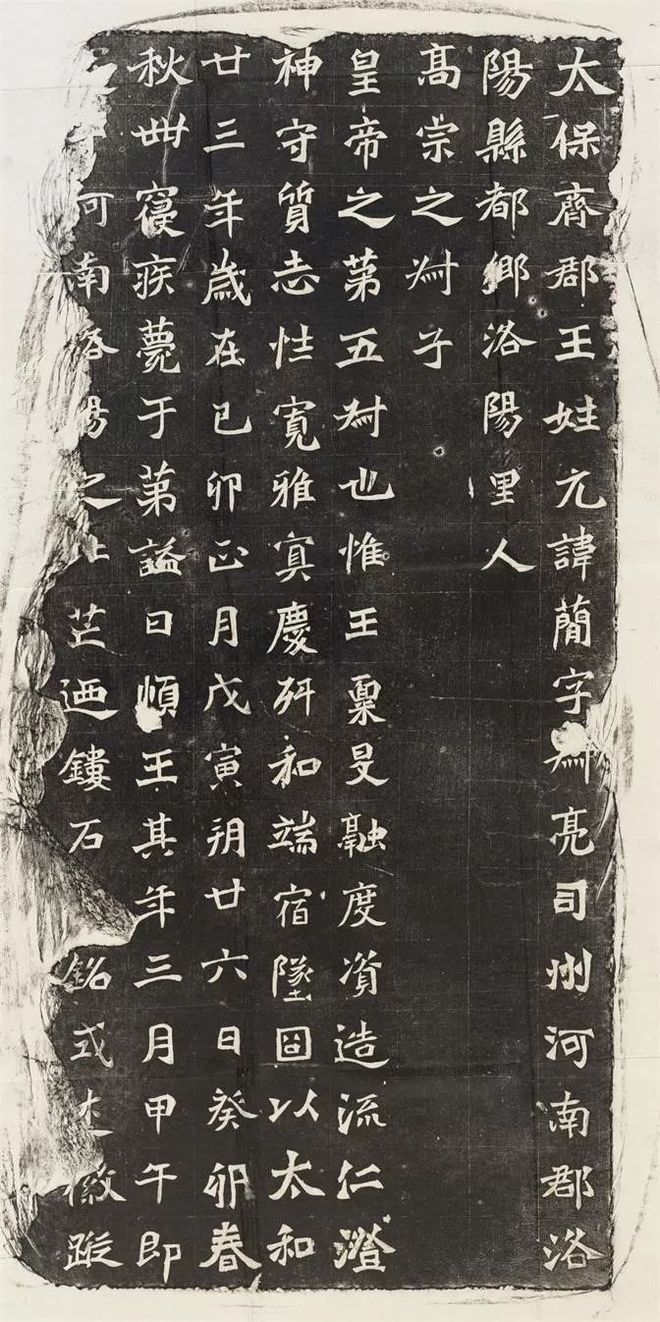 太保齊郡王姓元諱蘭字叔亮司州河南郡洛
陽縣都鄉洛陽里人
高宗之叔子
皇帝之第五叔也惟王稟旻融度資造流仁澄
神守質志性寬雅寘慶研和端宿墜固以太和
廿三年歲在己卯正月戊寅朔廿六日癸卯春
秋卌寢疾薨于第謚曰順王其年三月甲午即
河南洛陽之芒迺鏤石銘或述徽蹤